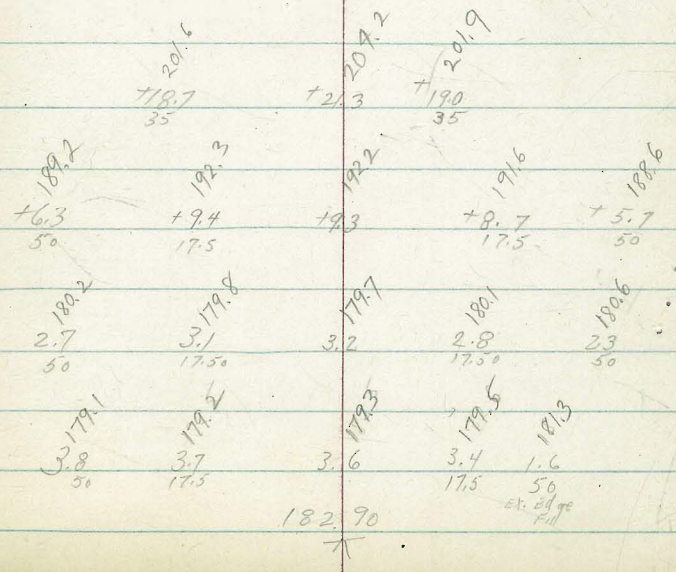 201.6 204.2 201.9
+18.7 +21.3 +19.0
35 35
189.2 192.3 192.2 191.6 188.6
+6.3 +9.4 +9.3 +8.7 +5.7
50 17.5 17.5 50
180.2 179.8 179.7 180.1 180.6
2.7 3.1 3.2 2.8 2.3
50 17.50 17.50 50
179.1 179.2 179.3 179.5 181.3
3.8 3.7 3.6 3.4 1.6
50 17.5 17.5 50
Ex. Edge
Fill
182.90
⊼